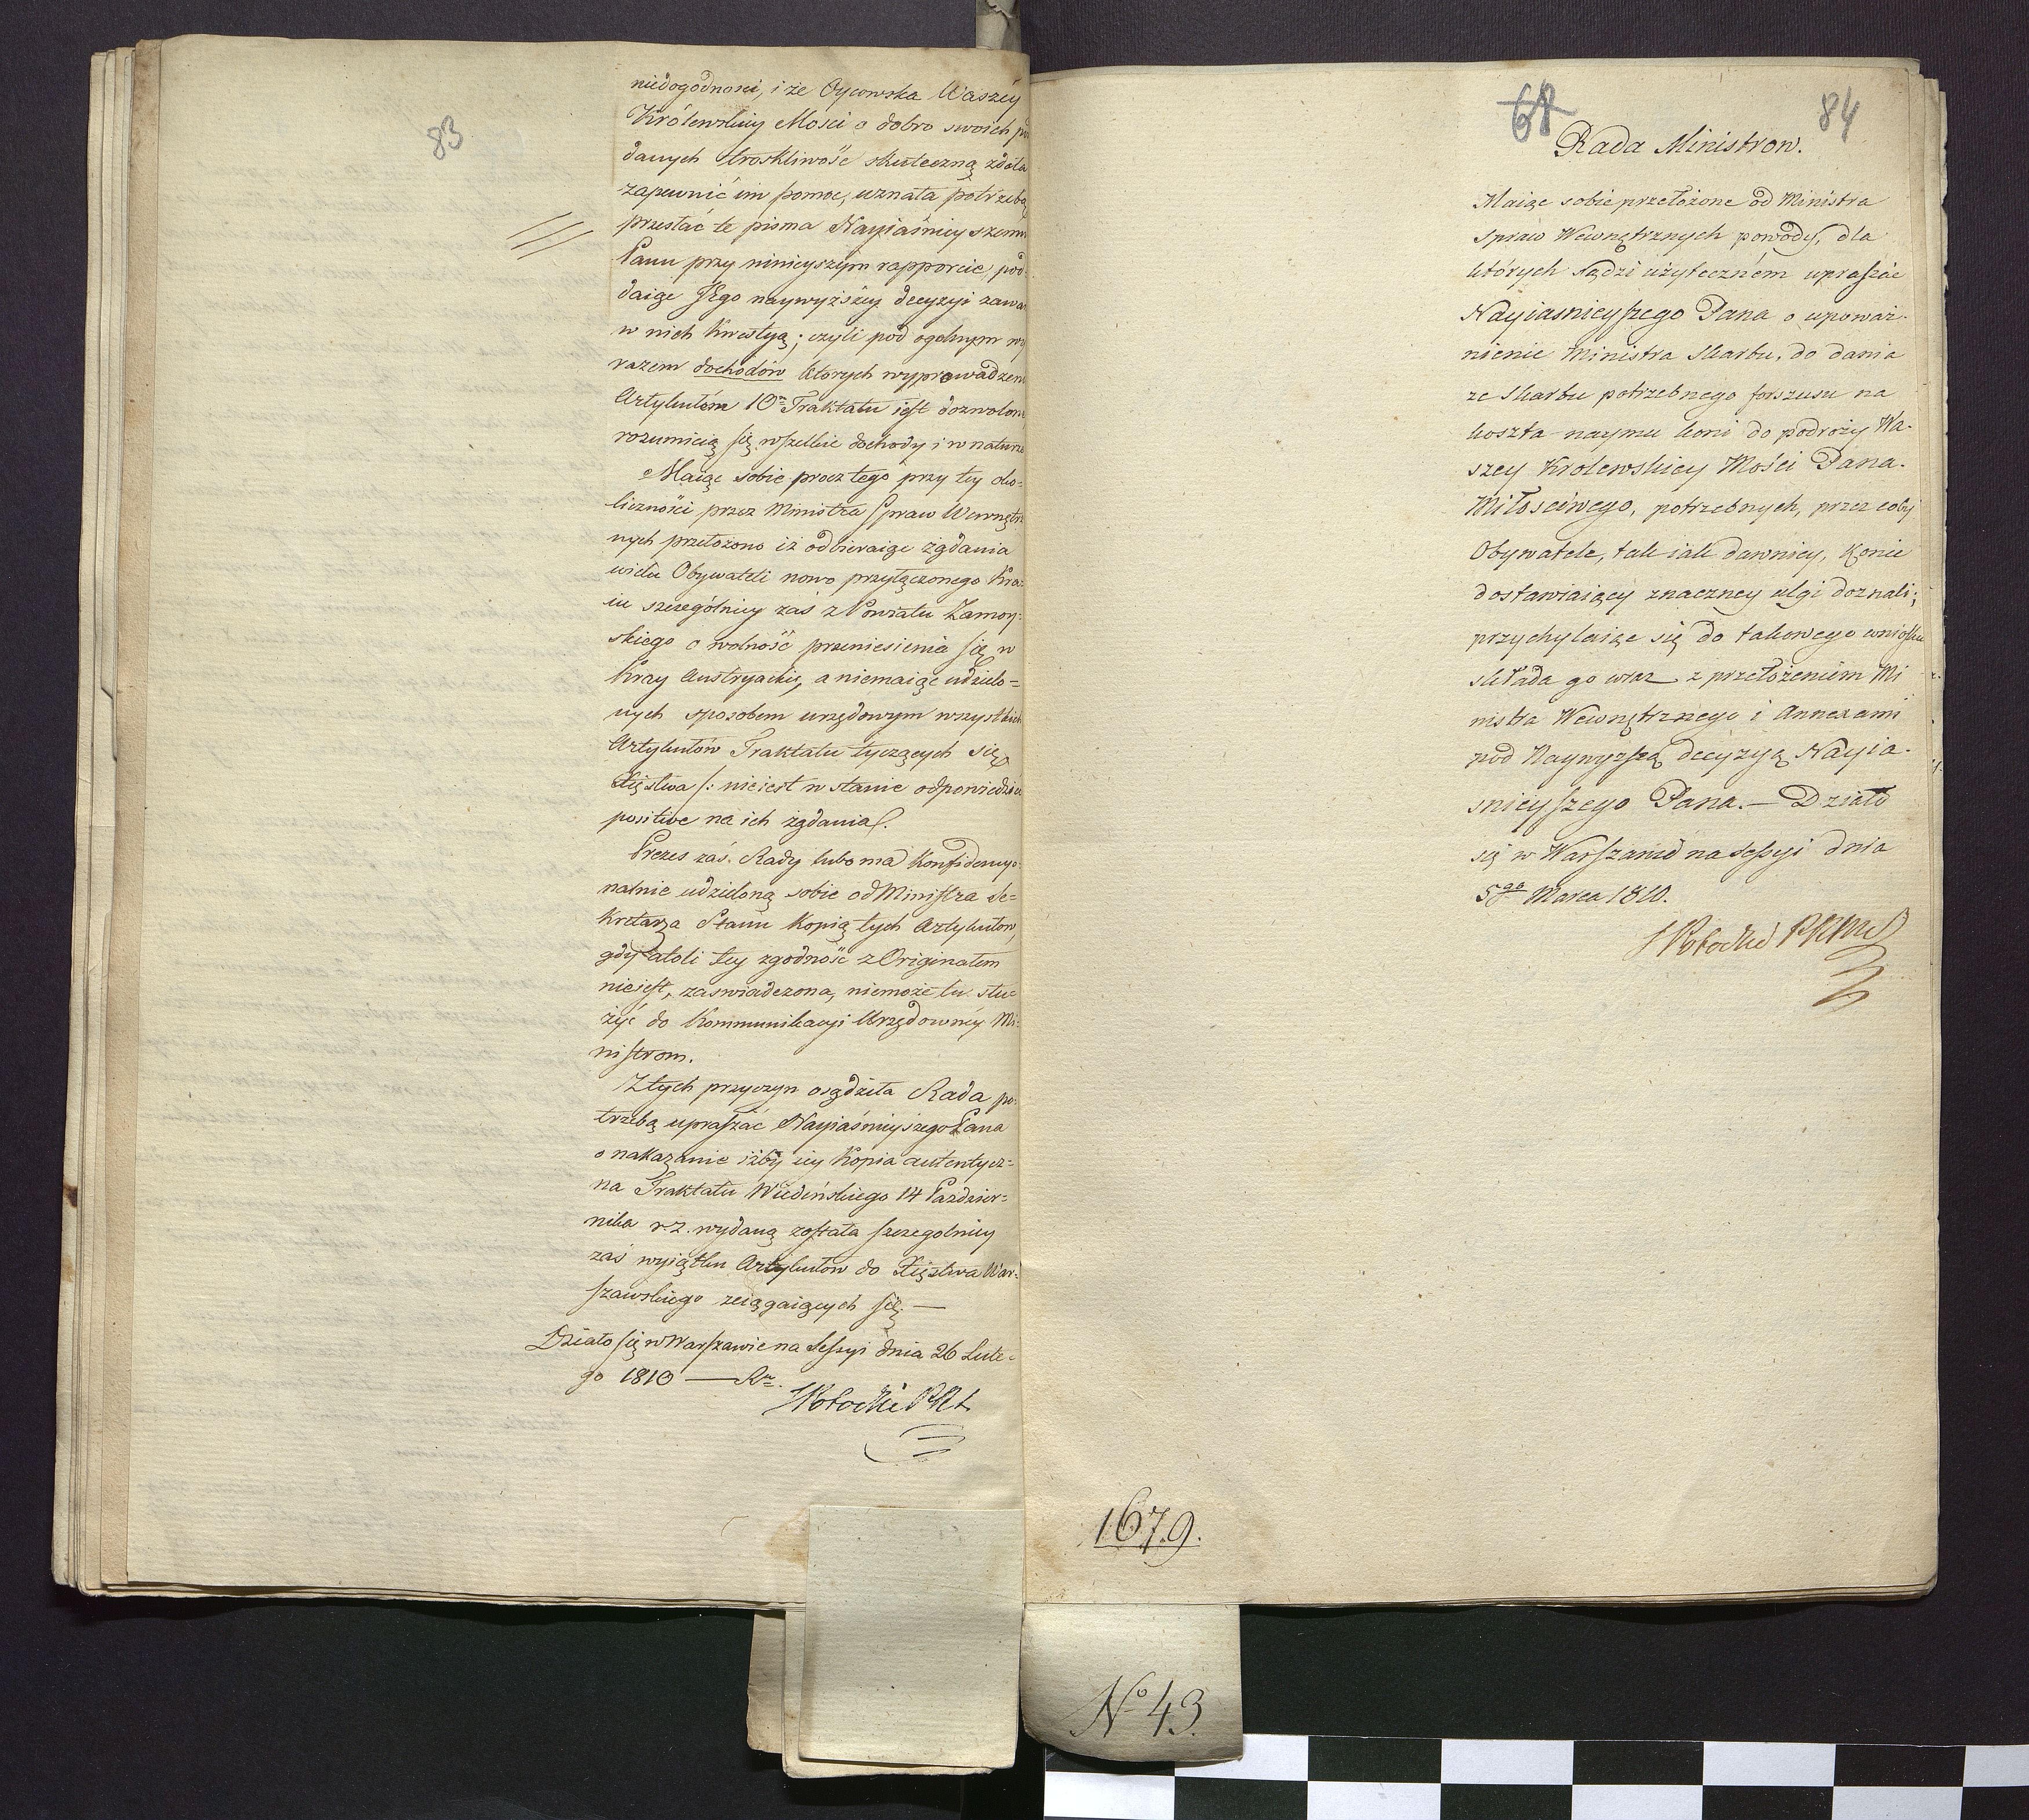 83
niedogodności, i że Oycowska Waszéy
Królewskiey Mości o dobro swoich po
danych troskliwość skuteczną zdoła
zapewnić im pomoc, uznała potrzebą
przesłać te pisma Nayiaśnieyszemu
Panu przy ninieyszym rapporcie, pod
daiąc Jego naywyższey decyzyi zawar
w nich kwestyą; czyli pod ogolnym wy
razem dochodów których wyprowadzeni
Artykułem 10m Traktatu iest dozwolone
rozumieią się wszelkie dochody i w naturze
Maiąc sobie procz tego przy tey oko=
liczności przez Ministra Spraw Wewnętrz
nych przełożono iż odbieraiąc żądania
wielu Obywateli nowo przyłączonego Kra=
iu szczególniey zaś z Powiatu Zamoy=
skiego o wolność przeniesienia się w
Kray Austryacki, a niemaiąc udzielo=
nych sposobem urzędowym wszystkich
Artykułów Traktatu tyczących się
Xięstwa /: nieiest w stanie odpowiedzieć
positive na ich żądania/.
Prezes zaś Rady lubo ma Konfidencyo=
nalnie udzieloną sobie od Ministra Se=
kretarza Stanu Kopią tych Artykułow,
gdy atoli tey zgodność z Originałem
nieiest zaświadczona, niemoże tu słu=
żyć do Kommunikacyi Urzędowéy Mi=
nistrom.
Z tych przyczyn osądziła Rada po=
trzebą upraszać Nayiaśnieyszego Pana
o nakazanie iżby iey Kopia autentycz=
na Traktatu Wiedeńskiego 14 Paździer=
nika r. z. wydaną została szczegolniey
zaś wyiątku Artykułow do Xięstwa War=
szawskiego sciągaiących się. —
Działo się w Warszawie na Sessyi dnia 26 Lute=
go 1810 — Rr.
SPotocki
68
84
Rada Ministrow.
Maiąc sobie przełożone od Ministra
Spraw Wewnętrznych powody, dla
których sądzi użyteczném upraszać
Nayiasnieyszego Pana o upoważ-
nienie Ministra Skarbu, do dania
ze Skarbu potrzebnego forszusu na
koszta naymu koni do podroży Wa-
szey Krolewskiey Mości Pana-
Miłosciwego, potrzebnych, przez coby
Obywatele, tak iak dawniey, konie
dostawiaiący znaczney ulgi doznali;
przychylaiąc się do takowego wniosku
składa go wraz z przełożeniem Mi
nistra Wewnętrznego i Annexami
pod Naywyższą decyzyą Nayia-
snieyszego Pana. — Działo
się w Warszawie na Sessyi dnia
5go Marca 1810.
SPotocki
1679.
No 43.